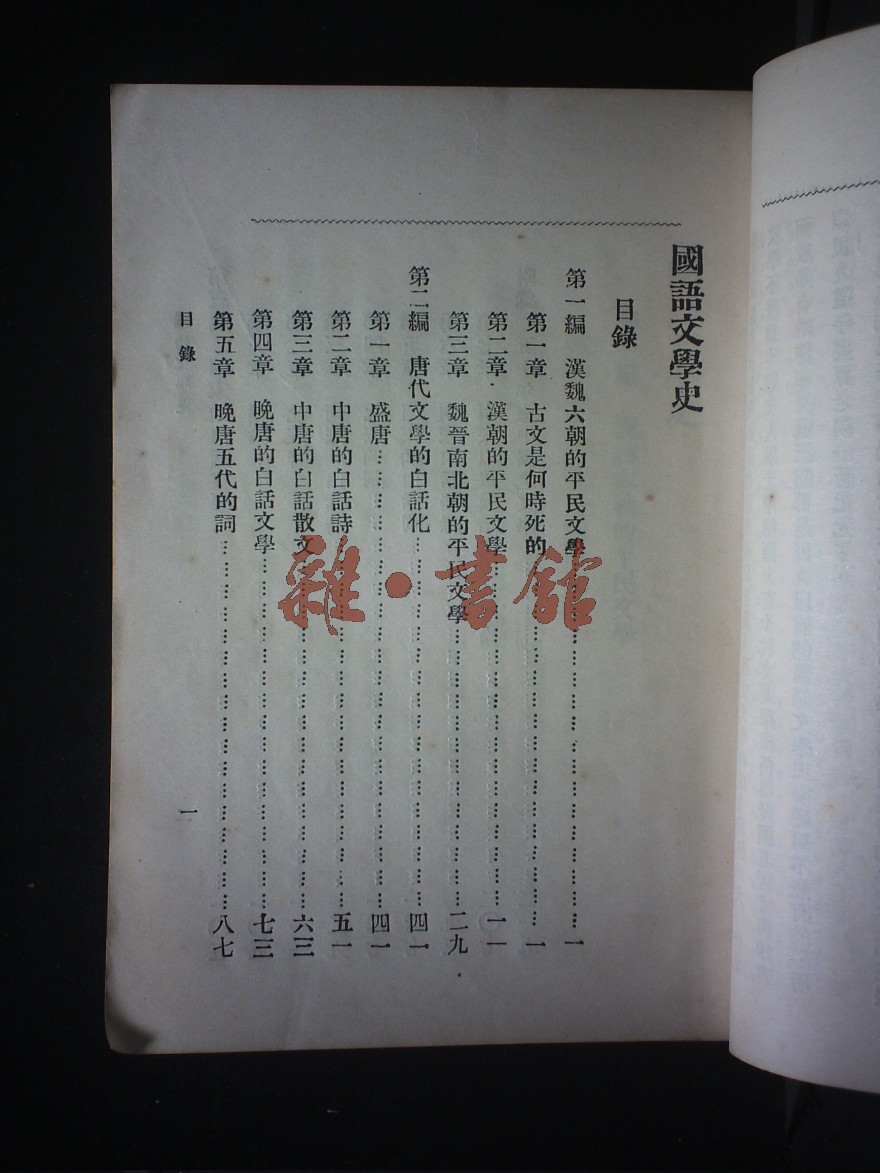 國語文學史
目錄
第一編 漢魏六朝的平民文學……一
第一章 古文是何時死的……一
第二章 漢朝的平民文學……一一
第三章 魏晉南北朝的平民文學……二九
第二編 唐代文學的白話化……四一
第一章 盛唐……四一
第二章 中唐的白話詩……五一
第三章 中唐的白話散文……六三
第四章 晚唐的白話文學……七三
第五章 晚唐五代的詞……八七
目錄 一
雜·書館